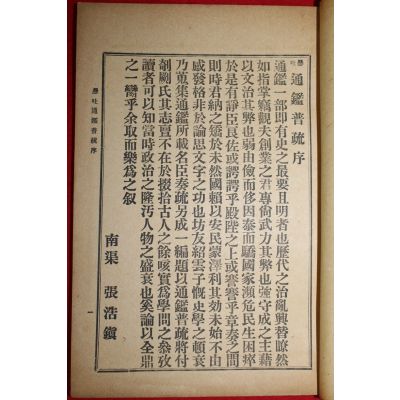 懸吐通鑑普疏序
通鑑一部即有史之最要且明者也歷代之治亂興替瞭然
如指掌竊觀夫創業之君專尙武力其弊也强守成之主藉
以文治其弊也弱由儉而侈因泰而驕國家濒危民生困瘁
於是有諍臣良佐或諤諤乎殿陛之上或謇謇乎章奏之間
則時君納之矯於未然國賴以安民蒙澤利其効未始不由
感發格非於論思文字之功也坊友紹雲子慨史學之頓衰
乃蒐集通鑑所載名臣奏疏另成一編題以通鑑普疏將付
剞劂氏其志亶不在於掇拾古人之餘咳實爲學問之叅攷
讀者可以知當時政治之隆汚人物之盛衰也奚論以全鼎
之一臠乎余取而樂爲之叙
南渠 張浩鎭
懸吐通鑑普疏序
一